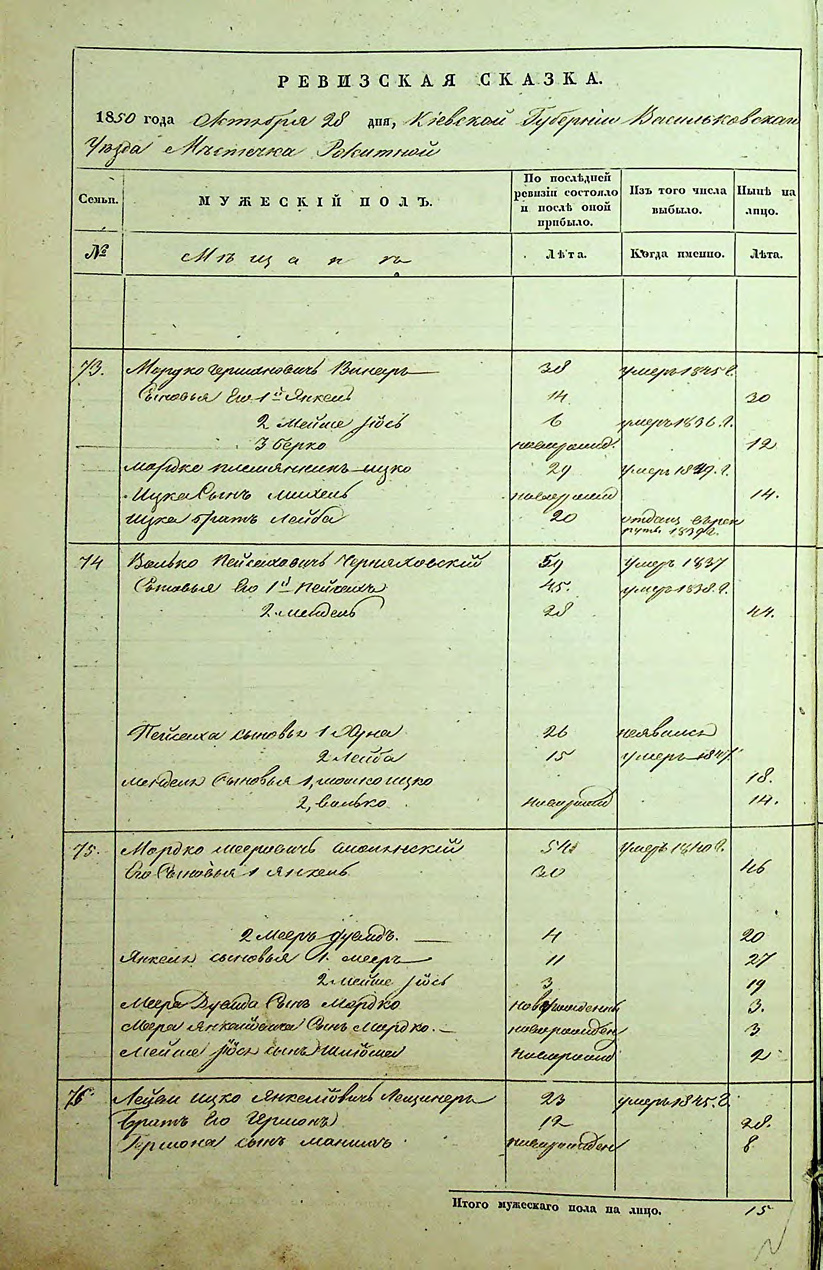 РЕВИЗСКАЯ СКАЗКА.
1850 года Октября 28 дня, Кіевской Губерніи Васильковскаго
Уѣзда Мѣстечка Рокитной
Семьи. МУЖЕСКІЙ ПОЛЪ. По послѣдней ревизіи состояло и послѣ оной прибыло. Изъ того числа выбыло. Нынѣ на лицо.
№ Мѣщане Лѣта. Когда именно. Лѣта.
73. Мордко Гершковичъ Винеръ 38 умеръ 1845 г.
Сыновья Его 1й Янкель 14 30
2 Мейше Іось 6 умеръ 1836 г.
3 Берко новорожд. 12
Мордко племянникъ Ицко 29 умеръ 1849 г.
Ицка Сынъ Михель новорожд 14.
Ицка братъ Лейба 20 отданъ въ рекруты 1839 г.
74 Волько Пейсаховичъ Черняховский 59 умеръ 1837
Сыновья Его 1й Пейсахъ 45. умеръ 1838 г.
2 Мендель 28 44.
Пейсаха сыновья 1 26 неявился
2 Лейба 15 умеръ 1847.
Менделя Сыновья 1, Мошко Ицко 18.
2, Волько новорожд 14.
75. Мордко Мееровичъ Смолянский 54 умеръ 1840 г.
Его Сыновья 1 Янкель 30 46
2 Мееръ Дувидъ. 4 20
Янкеля сыновья 1. Мееръ 11 27
2 Мейше Іось 3 19
Меера Дувида Сынъ Мордко новорожденный 3.
Меера Сынъ Мордко. новорожден 3
Мейше Іося сынъ Шлиома новорожд 2
76. Лейви Ицко Янкелиовичъ Лещинеръ 23 умеръ 1845. г.
Братъ Его Гершонъ 12 28.
Гершона сынъ новорожден 8
Итого мужескаго пола на лицо. 15